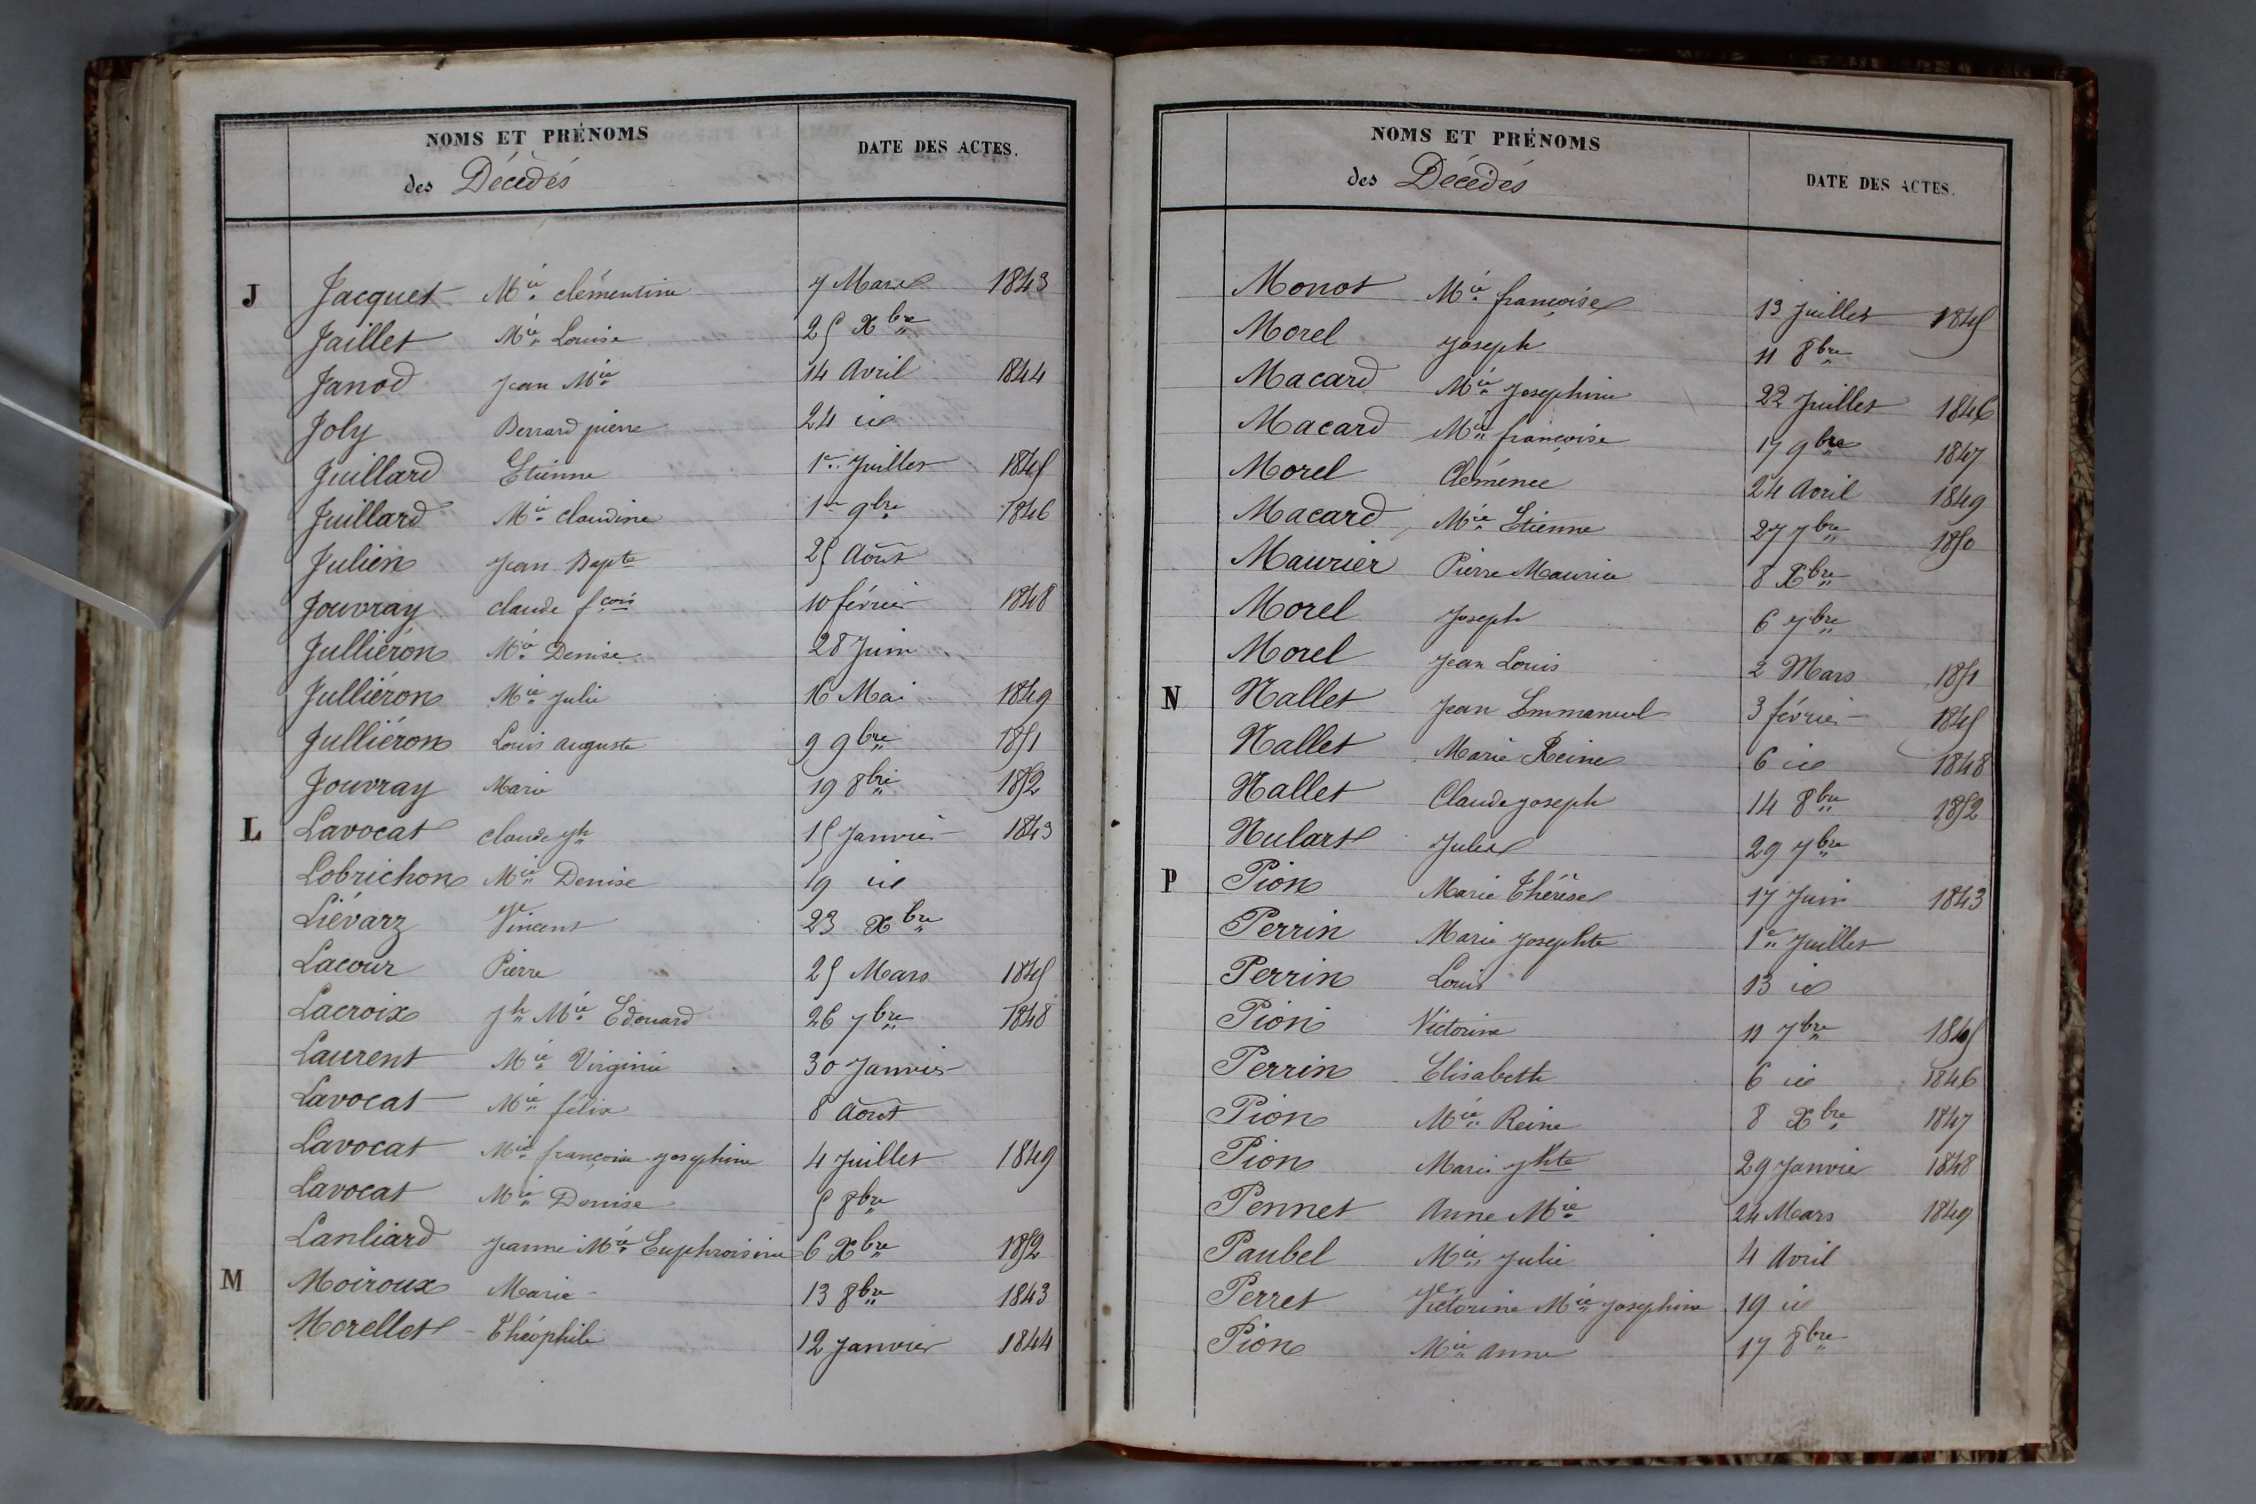 NOMS ET PRÉNOMS
DATE DES ACTES.
des Décédés
J Jacquet Mie clémentine 7 Mars 1843
Jaillet Mie Louise 25 Xbre
Janod Jean Mie 14 Avril 1844
Joly Bernard pierre 24 id
Juillard Etienne 1er Juillet 1845
Juillard Mie claudine 1er 9bre 1846
Julien Jean Bapte 25 Août
Jouvray claude fçois 10 février 1848
Julliéron Mie Denise 28 Juin
Julliéron Mie Julie 16 Mai 1849
Julliéron Louis auguste 9 9bre 1851
Jouvray Marie 19 8bre 1852
L Lavocat claude jh 15 Janvier 1843
Lobrichon Mie Denise 19 id
Liévarz Vincent 23 Xbre
Lacour Pierre 25 Mars 1845
Lacroix Jh Mie Edouard 26 7bre 1848
Laurent Mie Virginie 30 Janvier
Lavocat Mie félix 8 Août
Lavocat Mie françoise josephine 4 Juillet 1849
Lavocat Mie Denise 5 8bre
Lanliard Jeanne Mie Euphroisine 6 Xbre 1852
M Moiroux Marie 13 8bre 1843
Morellet Théophile 12 Janvier 1844
NOMS ET PRÉNOMS
DATE DES ACTES.
des Décédés
Monot Mie françoise 13 Juillet 1845
Morel Joseph 11 8bre
Macard Mie Josephine 22 Juillet 1846
Macard Mie françoise 17 9bre 1847
Morel Clémence 24 Avril 1849
Macard Mie Etienne 27 7bre 1850
Maurier Pierre Maurice 8 Xbre
Morel Joseph 6 7bre
Morel Jean Louis 2 Mars 1851
N Nallet Jean Emmanuel 3 février 1845
Nallet Marie Reine 6 id 1848
Nallet Claude joseph 14 8bre 1852
Nulart Jules 29 7bre
P Pion Marie Thérèse 17 Juin 1843
Perrin Marie Josephte 1er Juillet
Perrin Louis 13 id
Pion Victorine 11 7bre 1845
Perrin Elisabeth 6 id 1846
Pion Mie Reine 8 Xbre 1847
Pion Marie jhte 29 Janvier 1848
Pennet Anne Mie 24 Mars 1849
Paubel Mie Julie 4 Avril
Perret Victorine Mie Josephine 19 id
Pion Mie Anne 17 8bre